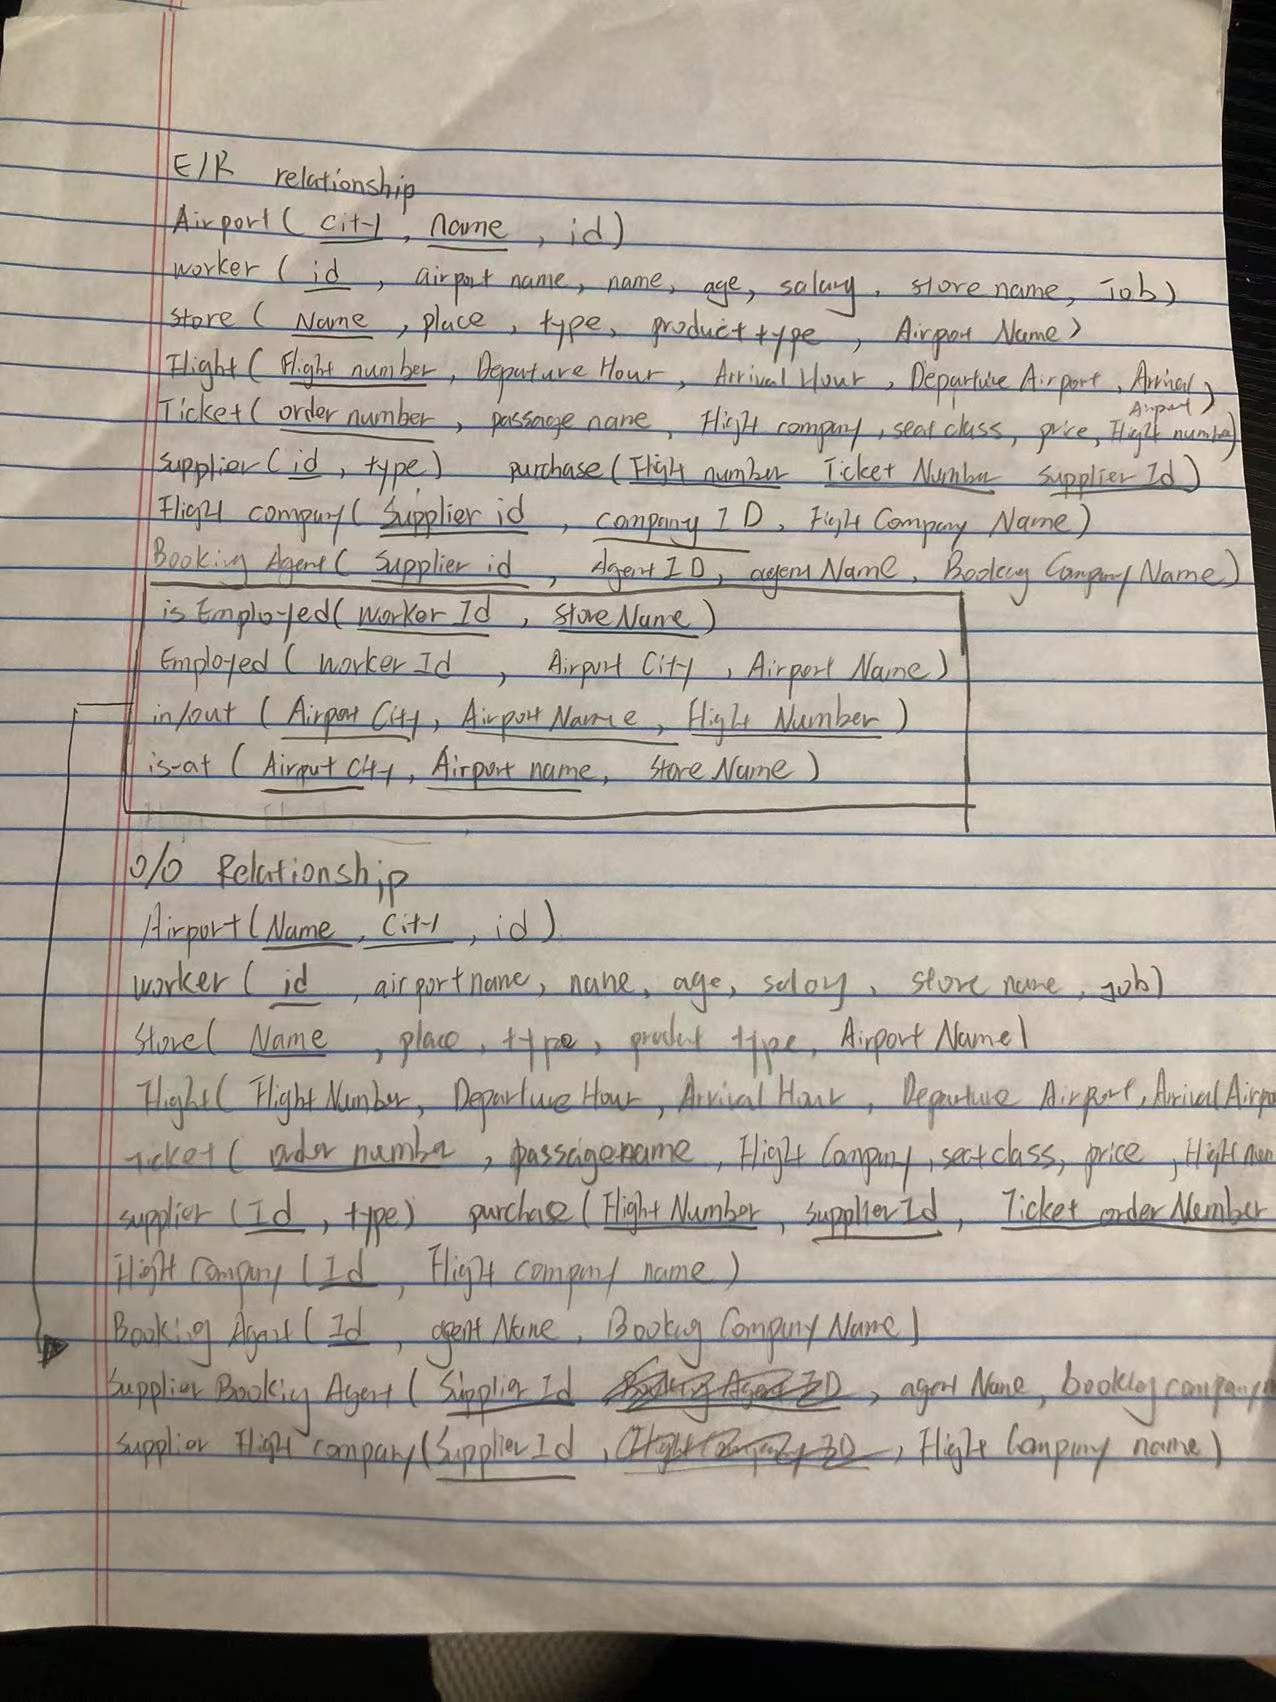 E/R relationship
Airport ( city , name , id )
worker ( id , airport name, name, age, salary, store name, job)
store ( Name , place , type, product type , Airport Name)
Flight ( Flight number , Departure Hour , Arrival Hour , Departure Airport , Arrival Airport )
Ticket ( order number , passage name , Flight company , seat class, price, Flight number)
supplier ( id , type ) purchase ( Flight number Ticket Number Supplier Id )
Flight company ( Supplier id , company ID , Flight Company Name )
Booking Agent ( Supplier id , Agent ID , agent Name , Booking Company Name )
is Employed ( worker Id , Store Name )
Employed ( worker Id , Airport City , Airport Name )
in/out ( Airport City, Airport Name , Flight Number )
is-at ( Airport City, Airport name, Store Name )
O/O Relationship
Airport ( Name , City , id )
worker ( id , airport name, name, age, salary, store name , job)
Store( Name , place , type , product type, Airport Name)
Flight( Flight Number, Departure Hour , Arrival Hour , Departure Airport, Arrival Airpo
ticket ( order number , passage name , Flight Company , seat class, price , Flight num
supplier ( Id , type) purchase ( Flight Number , supplier Id , Ticket order Number
Flight Company ( Id , Flight company name )
Booking Agent ( Id , agent Name , Booking Company Name )
Supplier Booking Agent ( Supplier Id Booking Agent ID , agent Name , booking company
supplier Flight company( Supplier Id , Flight Company ID , Flight Company name )